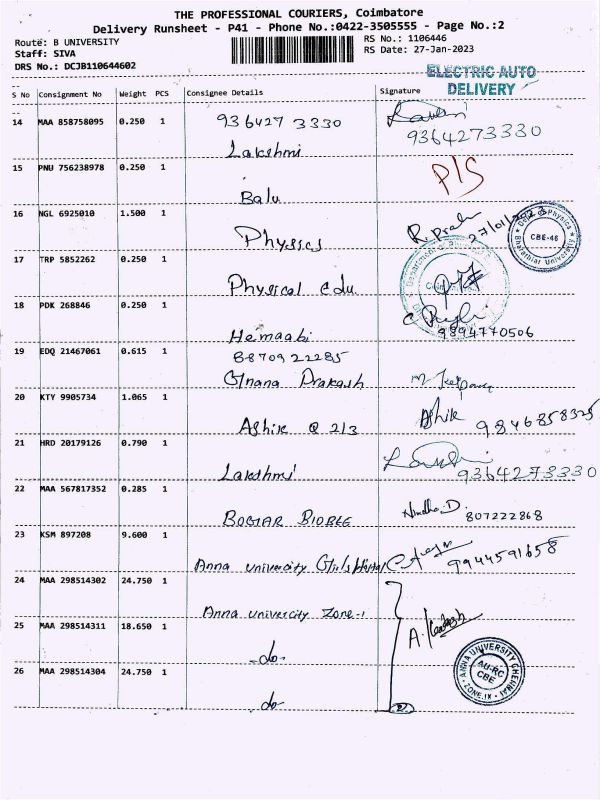 THE PROFESSIONAL COURIERS, Coimbatore
Delivery Runsheet - P41 - Phone No.:0422-3505555 - Page No.:2
Route: B UNIVERSITY
RS No.: 1106446
Staff: SIVA
RS Date: 27-Jan-2023
DRS No.: DCJB110644602
ELECTRIC AUTO
DELIVERY
S No Consignment No Weight PCS Consignee Details Signature
14 MAA 858758095 0.250 1 936427 3330
Lakshmi 9364273330
15 PNU 756238978 0.250 1 P/S
Balu
16 NGL 6925010 1.500 1 27/01/2023
Physics
CBE-46
Bharathiar University
17 TRP 5852262 0.250 1
Physical edu
18 PDK 268846 0.250 1
Hemaabi 9894770506
19 EDQ 21467061 0.615 1 8870922285
Gnana Prakash
20 KTY 9905734 1.065 1 Ashik
Ashik @ 213 9846858325
21 HRD 20179126 0.790 1
Lakshmi 9364273330
22 MAA 567817352 0.285 1
807222868
23 KSM 897208 9.600 1
Anna univercity Girls Hostel 9944591658
24 MAA 298514302 24.750 1
Anna univercity Zone-1
25 MAA 298514311 18.650 1
-do-
26 MAA 298514304 24.750 1
-do-
ANNA UNIVERSITY CHENNAI
AU-RC
CBE
ZONE.IX